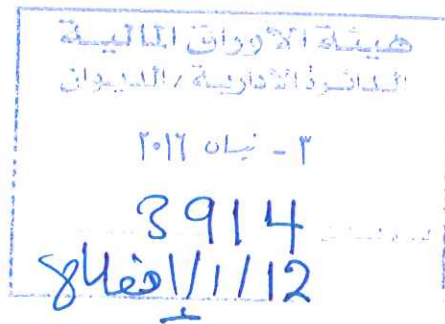 هيئة الأوراق المالية
الدائرة الادارية / الديوان
٣ - نيسان ٢٠١٦
3914
12/1/1/افصاح